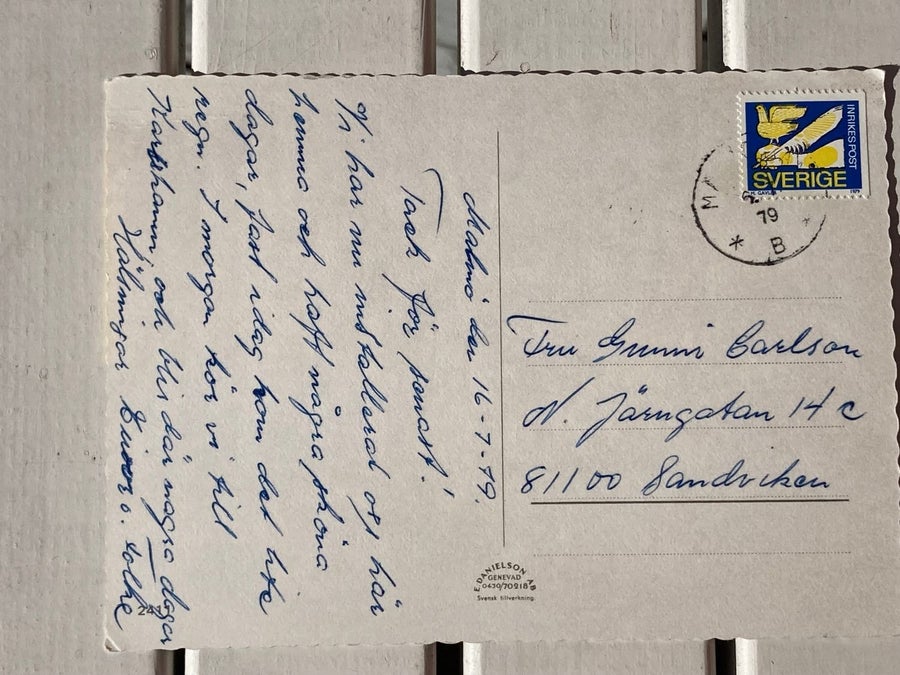 Malmö den 16-7-79.
Tack för senast!
Vi har nu installerat oss här
hemma och haft några sköna
dagar, fast idag kom det lite
regn. I morgon kör vi till
Karlshamn och blir där några dagar
Hälsningar o. Folke
INRIKESPOST
SVERIGE
1979
MA
79
* B *
Fru Gunni Carlson
N. Järngatan 14 c
81100 Sandviken
E. DANIELSON AB
GENEVAD
0430/70218
Svensk tillverkning.